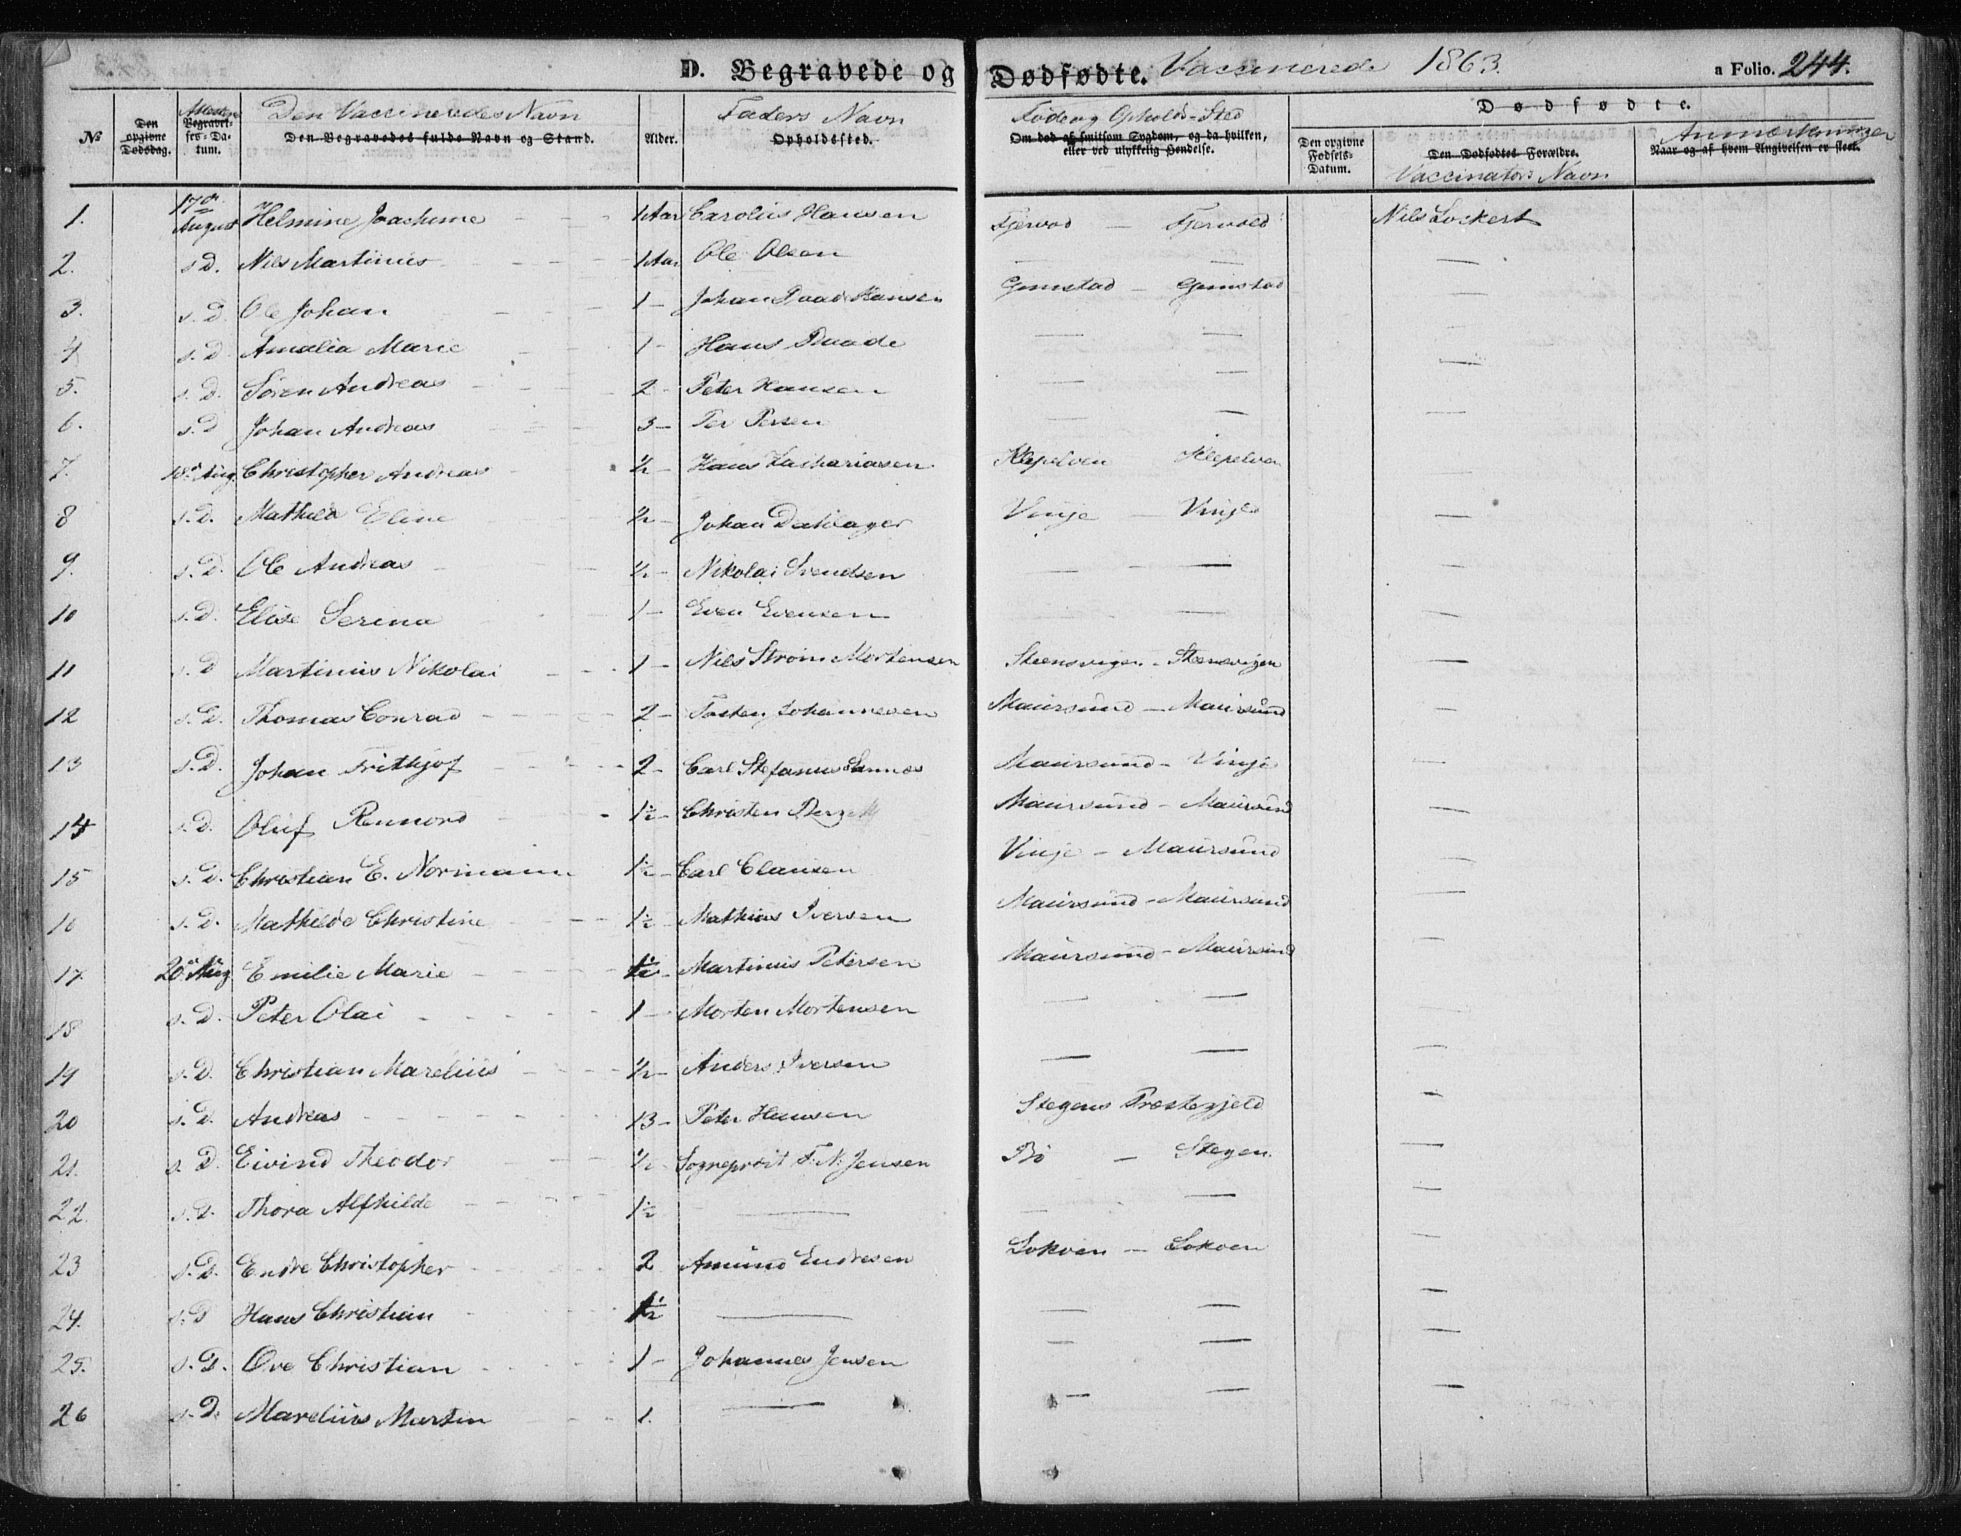 D. Begravede og Dødfødte. Vaccinerede 1863. a Folio. 244.
№ Den opgivne Dødsdag. Attestens Begravelses-Datum. Den Vaccineredes Navn Den Begravedes fulde Navn og Stand. Alder. Faders Navn Opholdssted. Føde og Opholds-Sted Om død af smitsom Sygdom, og da hvilken, eller ved ulykkelig Hendelse. Dødfødte. Den opgivne Fødsels-Datum. Den Dødfødtes Forældre. Vaccinators Navn Anmærkninger Naar og af hvem Angivelsen er skeet.
1. 17de August Helmine Joachime 1 Aar Carolius Hansen Fjervod — Fjervold Nils Lockert
2. s D. Nils Martinus 1 Aar Ole Olsen — — —
3. s. D. Ole Johan 1 — Johan Daade Hansen Gimstad — Gimstad —
4 s. D. Amalia Marie 1 — Hans Daade — — —
5. s. D. Søren Andreas 2 — Peter Hansen — — —
6. s. D Johan Andreas 3 — Per Persen — — —
7. 18de Aug Christopher Andreas ½ — Hans Zachariasen Klepelven Klepelven —
8 s. D. Mathild Eline ½ — Johan Dahlager Vinje — Vinje —
9. s. D. Ole Andreas ½ — Nikolai Svendsen — — —
10 s. D. Elise Serina 1 — Even Evensen — — —
11 s. D Martinus Nikolai 1 — Nils Strøm Mortensen Steensvigen — Steensvigen —
12 s. D. Thomas Conrad 2 — Johannesen Maursund — Maursund —
13 s. D. Johan Frithjof 2 — Carl Stefanus Maursund — Vinje —
14 s. D. Oluf 1½ — Christen Maursund — Maursund —
15 s. D. Christian E. Normann 1½ — Carl Clausen Vinje — Maursund —
16 s. D. Mathilde Christine 1½ — Mathias Iversen Maursund — Maursund —
17. 20de Aug Emilie Marie ½ — Martinus Petersen Maursund — Maursund —
18 s. D. Peter Olai 1 — Morten Mortensen — — —
19 s. D. Christian Marelius ½ — Anders Iversen — — —
20 s. D. Andreas 13 — Peter Hansen Stegens Præstegjeld —
21. s. D. Eivind Theodor ½ Sogneprest F. N. Jensen Bø — Stegen. —
22. s. D. Thora Alfhilde 1½ — — — —
23 s. D. Endre Christopher 2 Amund Endresen Lokven — Lokven —
24. s. D Hans Christian ½ — — — —
25. s. D. Ove Christian 1 — Johannes Jensen — — —
26 s. D. Marelius Martin 1. — — — —